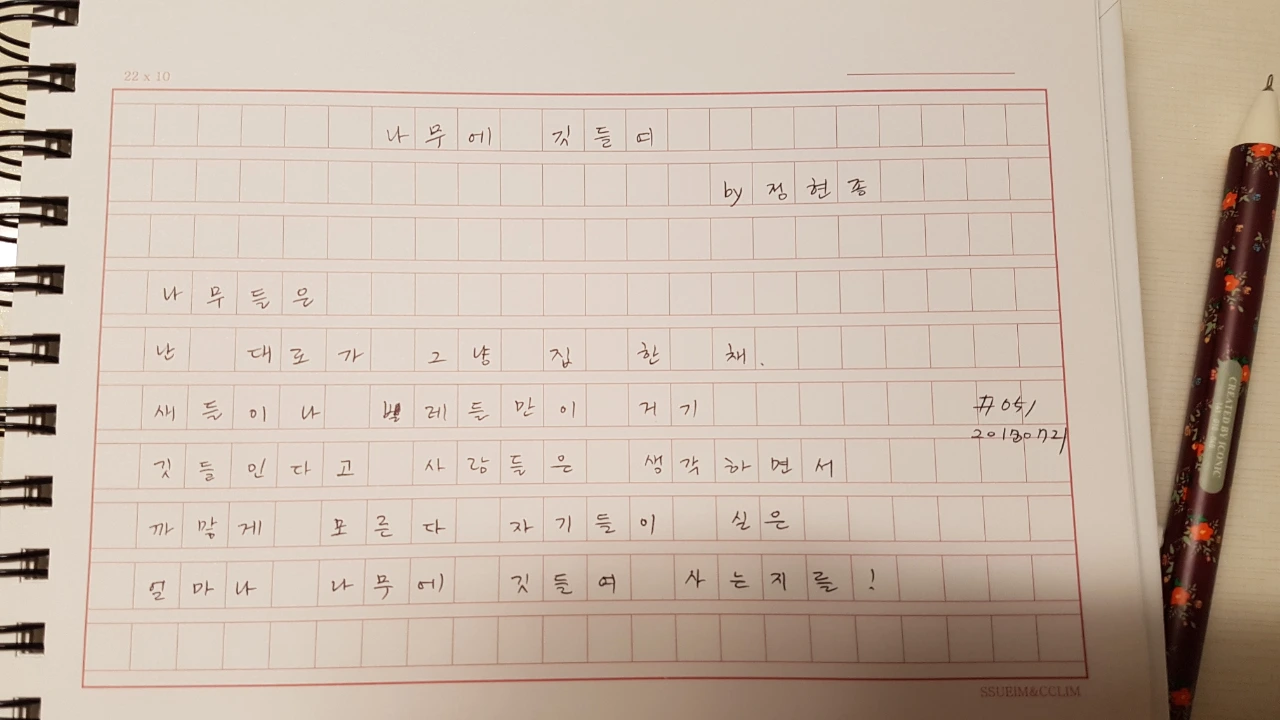 22 x 10
나무에 깃들여
by 정현종
나무들은
난 대로가 그냥 집 한 채.
새들이나 벌레들만이 거기
#051
깃들인다고 사람들은 생각하면서
까맣게 모른다 자기들이 실은
얼마나 나무에 깃들여 사는지를!
SSUEIM&CCLIM
CREATED BY ICONIC